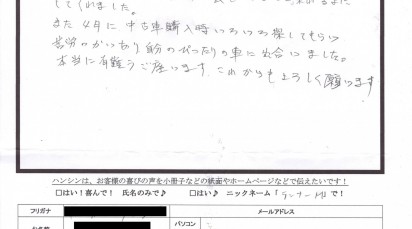 してくれました。
また4年に中古車購入時いろいろ探してもらい
苦労のかいあり自分のぴったりの車に出合いました。
本当に有難うございます これからもよろしく願います
ハンシンは、お客様の喜びの声を小冊子などの紙面やホームページなどで伝えたいです！
□はい！喜んで！ 氏名のみで♪ □はい！ ニックネーム「 」で！
フリガナ メールアドレス
お名前 パソコン